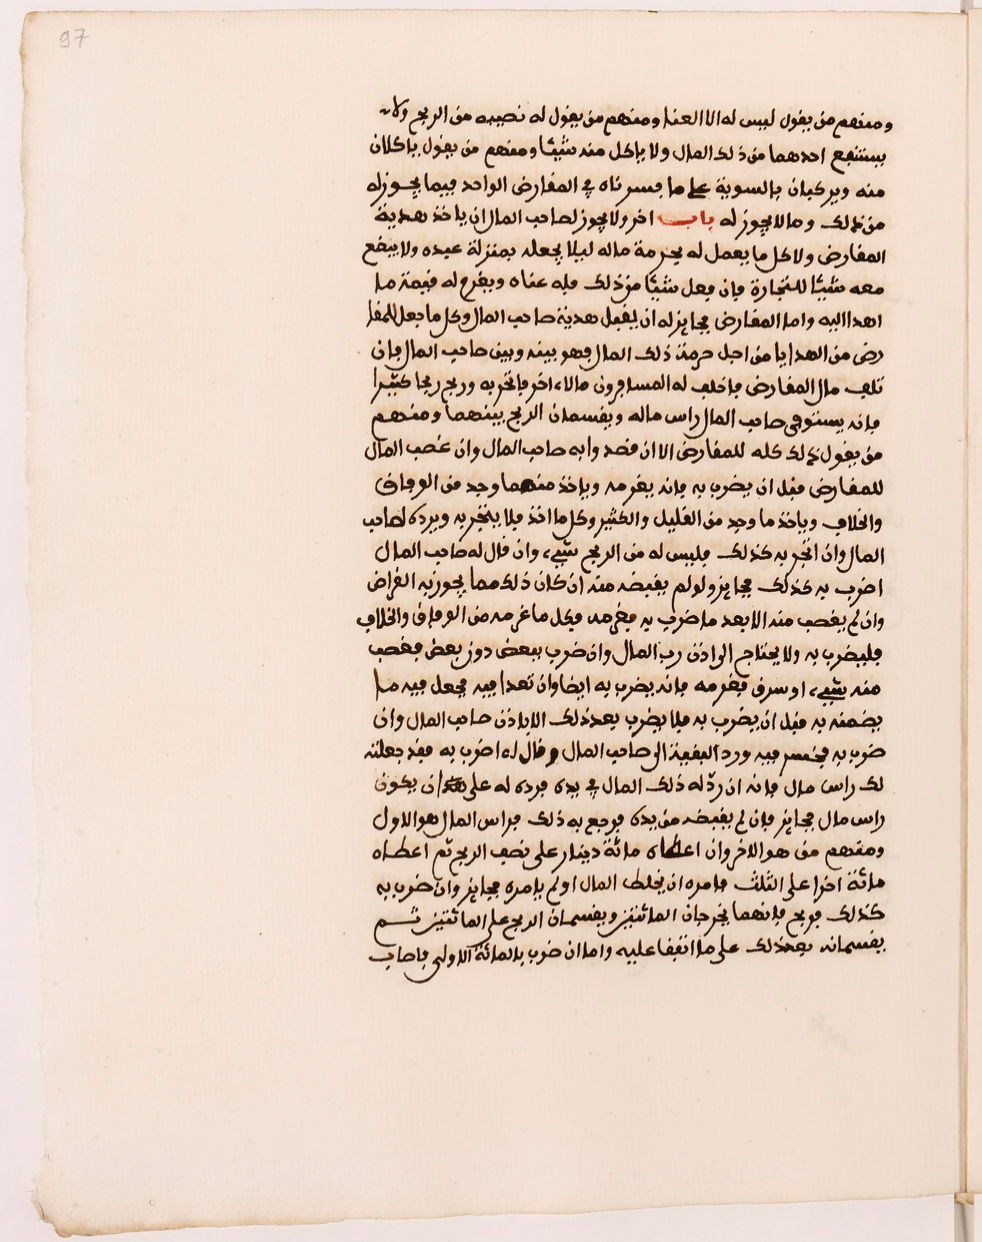 97
ومنهم من يقول ليس له الا العنا ومنهم من يقول له نصيبه من الربح ولا
يستنفع احدهما من ذلك المال ولا ياكل منه شيئا ومنهم من يقول ياكلان
منه ويركبان بالسوية على ما فسرناه في المقارض الواحد فيما يجوز له
من ذلك وما لا يجوز له باب اخر ولا يجوز لصاحب المال ان ياخذ هدية
المقارض ولا كل ما يعمل له بحرمة ماله ليلا يجعله بمنزلة عبده ولا يبضع
معه شيئا للتجارة فان فعل شيئا من ذلك فله عناه ويغرم له قيمة ما
اهدا اليه واما المقارض فجايز له ان يقبل هدية صاحب المال وكل ما جعل للمقا
رض من الهدايا من اجل حرمة ذلك المال فهو بينه وبين صاحب المال فان
تلف مال المقارض فاخلف له المسافرون مالا اخر فاتجر به وربح ربحا كثيرا
فانه يستوفي صاحب المال راس ماله ويقسمان الربح بينهما ومنهم
من يقول ذلك كله للمقارض الا ان قصدوا به صاحب المال وان غصب المال
للمقارض قبل ان يضرب به فانه يغرمه وياخذ منهما وجد من الوفاق
والخلاف وياخذ ما وجد من القليل والكثير وكل ما اخذ فلا يتجر به ويرده لصاحب
المال وان اتجر به كذلك فليس له من الربح شيء وان قال له صاحب المال
اضرب به كذلك فجايز ولو لم يقبضه منه ان كان ذلك مما يجوز به القراض
وان لم يغصب منه الا بعد ما ضرب به فغرمه فكل ما غرمه من الوفاق والخلاف
فليضرب به ولا يحتاج الى اذن رب المال وان ضرب ببعض دون بعض فغصب
منه شيء او سرق فغرمه فانه يضرب به ايضا وان تعدا فيه فجعل فيه ما
يضمنه به قبل ان يضرب به فلا يضرب بعد ذلك الا باذن صاحب المال وان
ضرب به فخسر فيه ورد البقية الى صاحب المال وقال له اضرب به فقد جعلته
لك راس مال فانه ان رد له ذلك المال في يده فرده له على ان يكون
راس مال فجايز فان لم يقبضه من يده فرجع به ذلك فراس المال هو الاول
ومنهم من هو الاخر وان اعطاه مائة دينار على نصف الربح ثم اعطاه
مائة اخرا على الثلث فامره ان يخلط المال او لم يامره فجايز وان ضرب به
كذلك فربح فانهما يخرجان المائتين ويقسمان الربح على المائتين ثم
يقسمانه بعد ذلك على ما اتفقا عليه واما ان ضرب بالمائة الاولى فاصاب